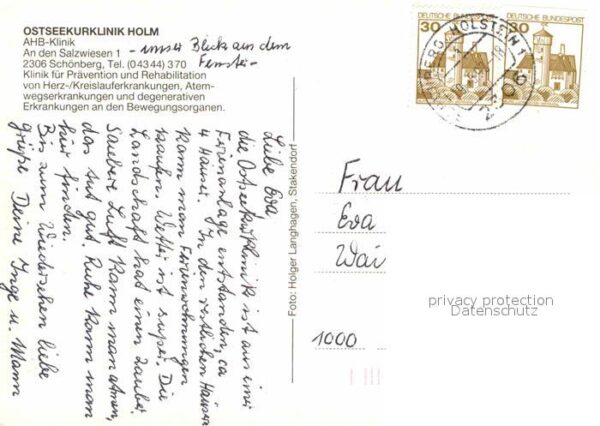 OSTSEEKURKLINIK HOLM
AHB-Klinik
An den Salzwiesen 1 - unser Blick aus dem
Fenster -
2306 Schönberg, Tel. (04344) 370
Klinik für Prävention und Rehabilitation
von Herz-/Kreislauferkrankungen, Atem-
wegserkrankungen und degenerativen
Erkrankungen an den Bewegungsorganen.
Liebe Eva
die Ostseekurklinik ist aus einer
Ferienanlage entstanden, ca
4 Häuser. In den restlichen Häusern
kann man Ferienwohnungen
kaufen. Wetter ist super. Die
Landschaft hat einen Zauber.
Saubere Luft kann man atmen,
das tut gut. Ruhe kann man
hier finden.
Bis zum Wiedersehen liebe
Grüße Deine Inge u. Mann
Foto: Holger Langhagen, Stakendorf
30 DEUTSCHE BUNDESPOST
30 DEUTSCHE BUNDESPOST
HOLSTEIN 1
Frau
Eva
Wai
1000
privacy protection
Datenschutz